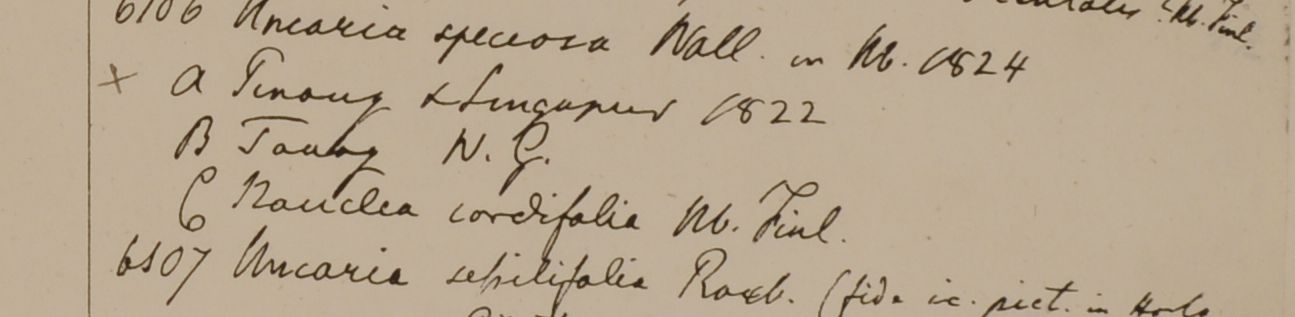 Hb. Finl.
6106 Uncaria speciosa Wall. in Hb. 1824
+ A Penang & Singapur 1822
B Tavoy W. G.
C Nauclea cordifolia Hb. Finl.
6107 Uncaria sessilifolia Roxb. (fide ic. pict. in Horto